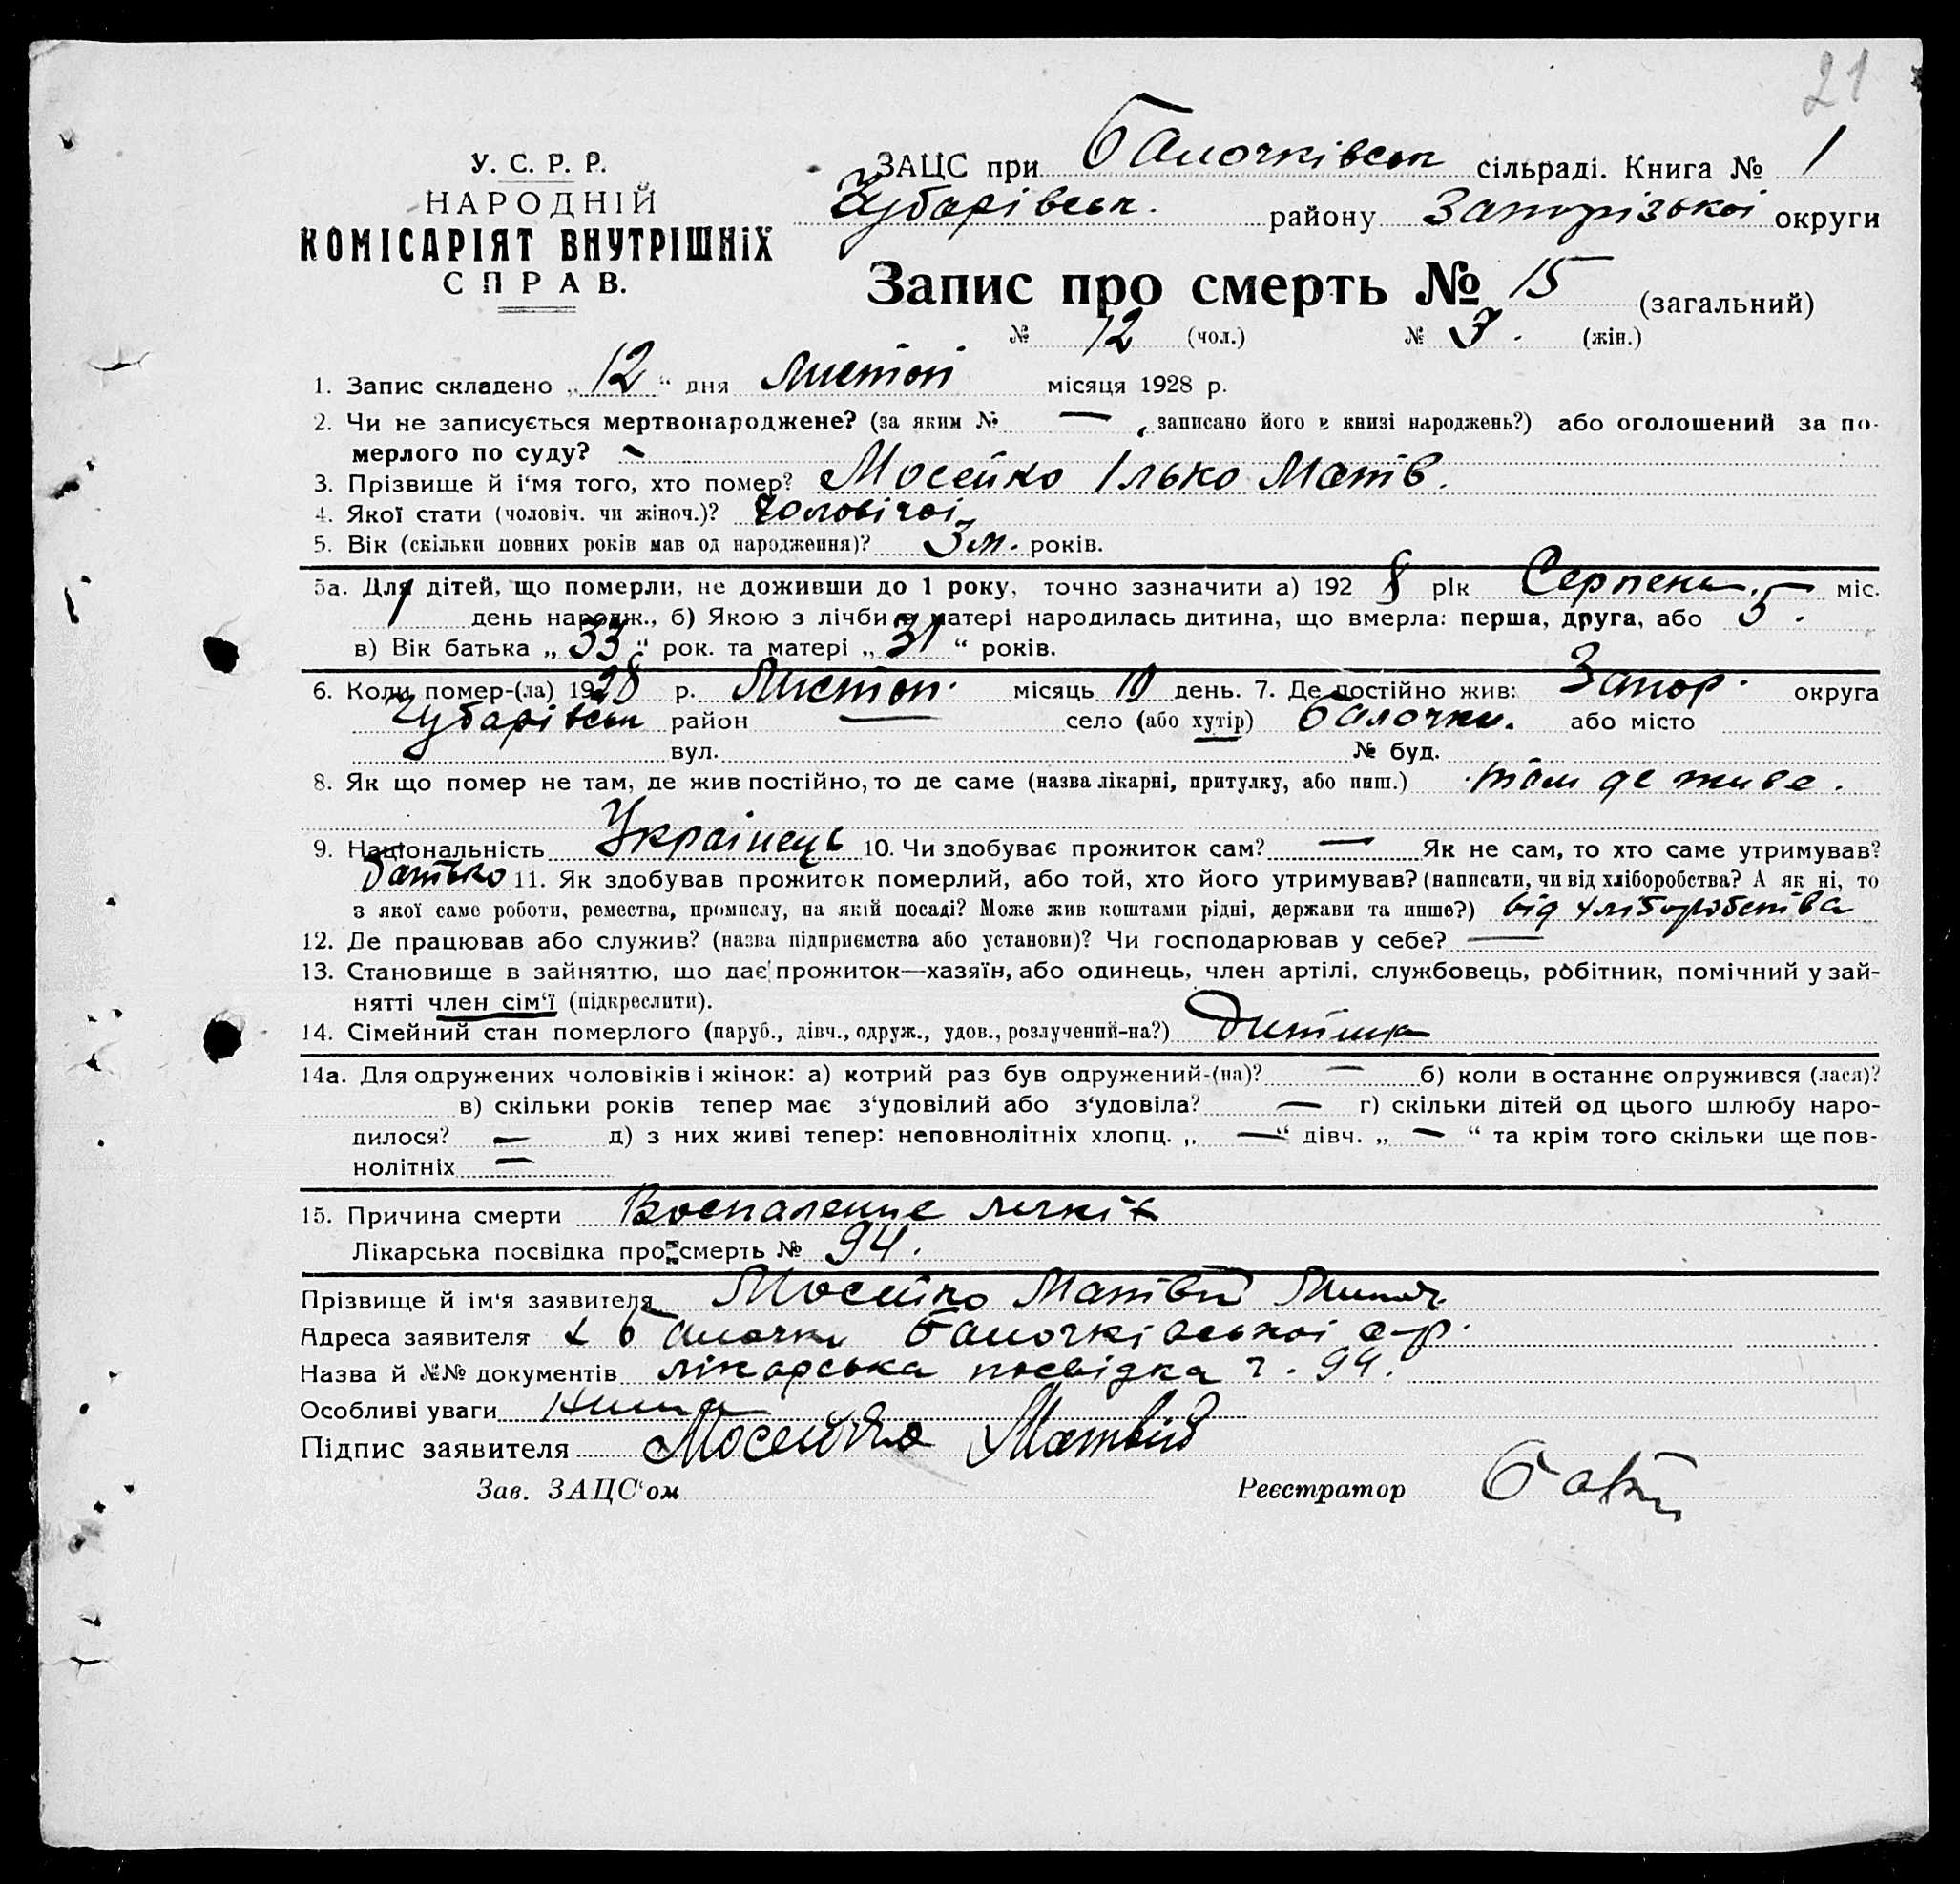 21
У. С. Р. Р.
НАРОДНІЙ
КОМІСАРІЯТ ВНУТРІШНіХ
СПРАВ.
ЗАЦС при Балочківськ сільраді. Книга № 1
Чубарівськ. району Запорізької округи
Запис про смерть № 15 (загальний)
№ 12 (чол.) № 3. (жін.)
1. Запис складено „12“ дня Листоп місяця 1928 р.
2. Чи не записується мертвонароджене? (за яким № — , записано його в книзі народжень?) або оголошений за по-
мерлого по суду? —
3. Прізвище й і‘мя того, хто помер? Мосейко Ілько Матв.
4. Якої стати (чоловіч. чи жіноч.)? Чоловічої
5. Вік (скільки повних років мав од народження)? 3 м. років.
5а. Для дітей, що померли, не доживши до 1 року, точно зазначити а) 1928 рік Серпень. міс.
1 день народж., б) Якою з лічби у матері народилась дитина, що вмерла: перша, друга, або 5.
в) Вік батька „33“ рок. та матері „31“ років.
6. Коли помер-(ла) 1928 р. Листоп. місяць 10 день. 7. Де постійно жив: Запор. округа
Чубарівськ район — село (або хутір) Балочки. або місто
вул. № буд.
8. Як що помер не там, де жив постійно, то де саме (назва лікарні, притулку, або инш.) там де живе.
9. Національність Українець 10. Чи здобуває прожиток сам? — Як не сам, то хто саме утримував?
батько 11. Як здобував прожиток померлий, або той, хто його утримував? (написати, чи від хліборобства? А як ні, то
з якої саме роботи, ремества, промислу, на якій посаді? Може жив коштами рідні, держави та инше?) від хліборобства
12. Де працював або служив? (назва підприємства або установи)? Чи господарював у себе? —
13. Становище в зайняттю, що дає прожиток—хазяїн, або одинець, член артілі, службовець, робітник, помічний у зай-
нятті член сім‘ї (підкреслити).
14. Сімейний стан померлого (паруб., дівч., одруж., удов., розлучений-на?) Дитина
14а. Для одружених чоловіків і жінок: а) котрий раз був одружений-(на)? — б) коли востаннє одружився (лася)?
в) скільки років тепер має з‘удовілий або з‘удовіла? — г) скільки дітей од цього шлюбу наро-
дилося? — д) з них живі тепер: неповнолітніх хлопц. „—“ дівч. „—“ та крім того скільки ще пов-
нолітніх —
15. Причина смерти Воспаление легкіх
Лікарська посвідка про смерть № 94.
Прізвище й ім‘я заявителя Мосейко Матвій
Адреса заявителя х Балочки Балочківської с-р.
Назва й №№ документів лікарська посвідка ч. 94.
Особливі уваги Нима
Підпис заявителя Мосейко Матвій
Зав. ЗАЦС‘ом Реєстратор